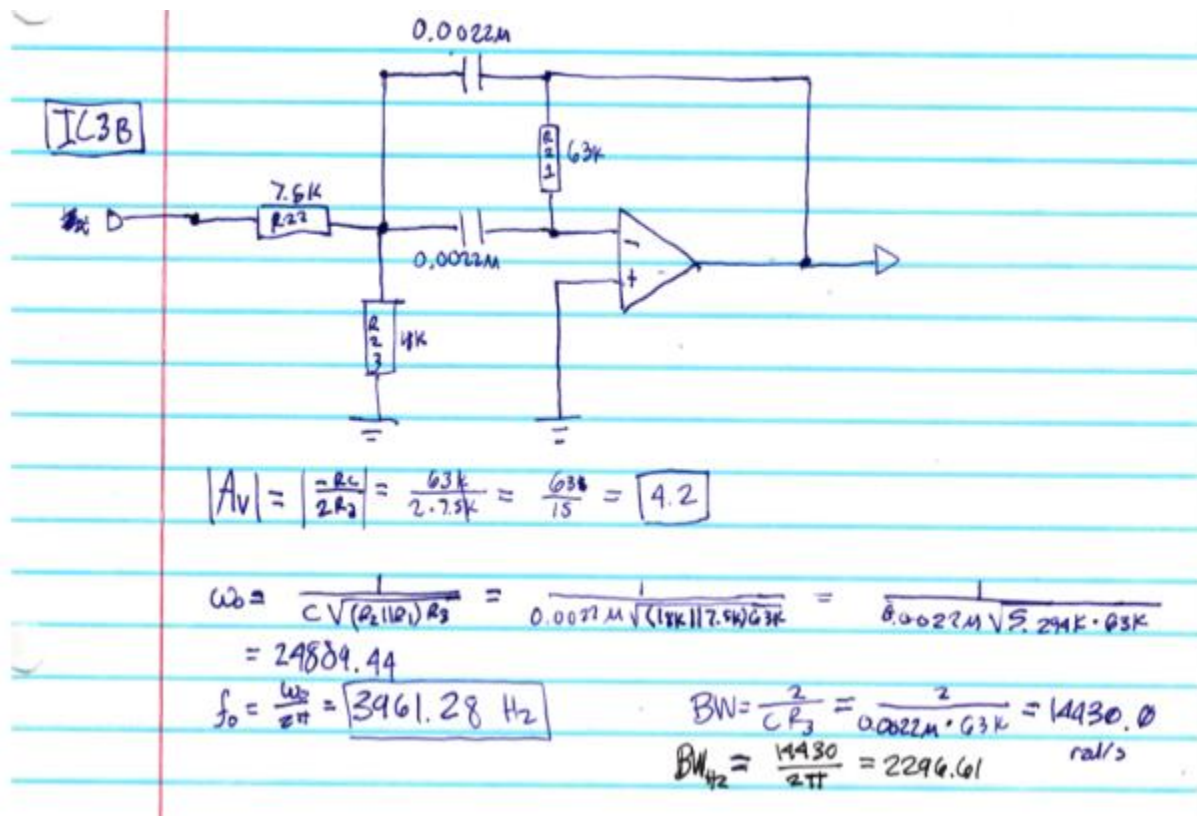 0.0022M
IC3B
R21 63K
7.5K
R22
0.0022M
-
+
R23 18K
|Av| = |-RC/2R2| = 63K/2·7.5K = 63K/15 = 4.2
ω0 = 1/C√(R2||R1)R3 = 1/0.0022M√(18K||7.5K)63K = 1/0.0022M√5.294K·63K
= 24889.44
f0 = ω0/2π = 3961.28 Hz
BW = 2/CR3 = 2/0.0022M·63K = 14430.0 rad/s
BWHz = 14430/2π = 2296.61